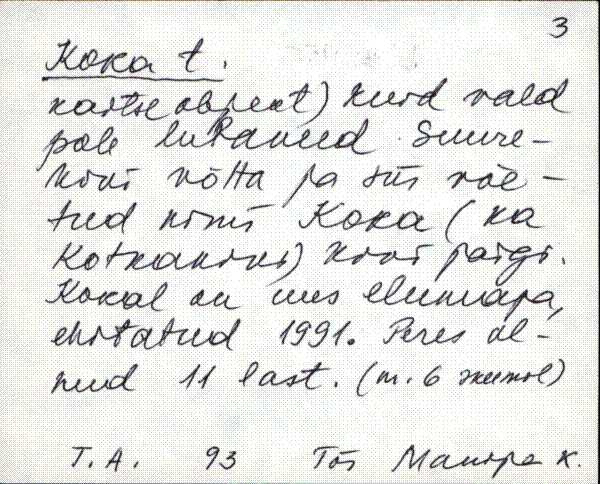 3
Koka t.
kaitseobjekt) kuid vald
pole lubanud Suure-
kivi võtta ja siis võe-
tud nimi Koka (ka
Kotkakivi) kivi järgi.
Kokal on uus elumaja,
ehitatud 1991. Peres ol-
nud 11 last. (m. 6
T. A. 93 Tõs k.